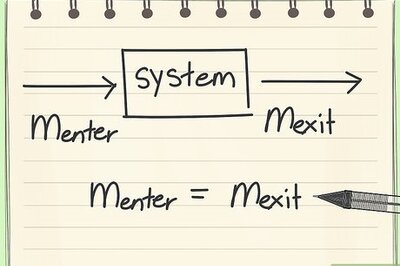 system
Menter
Mexit
Menter = Mexit